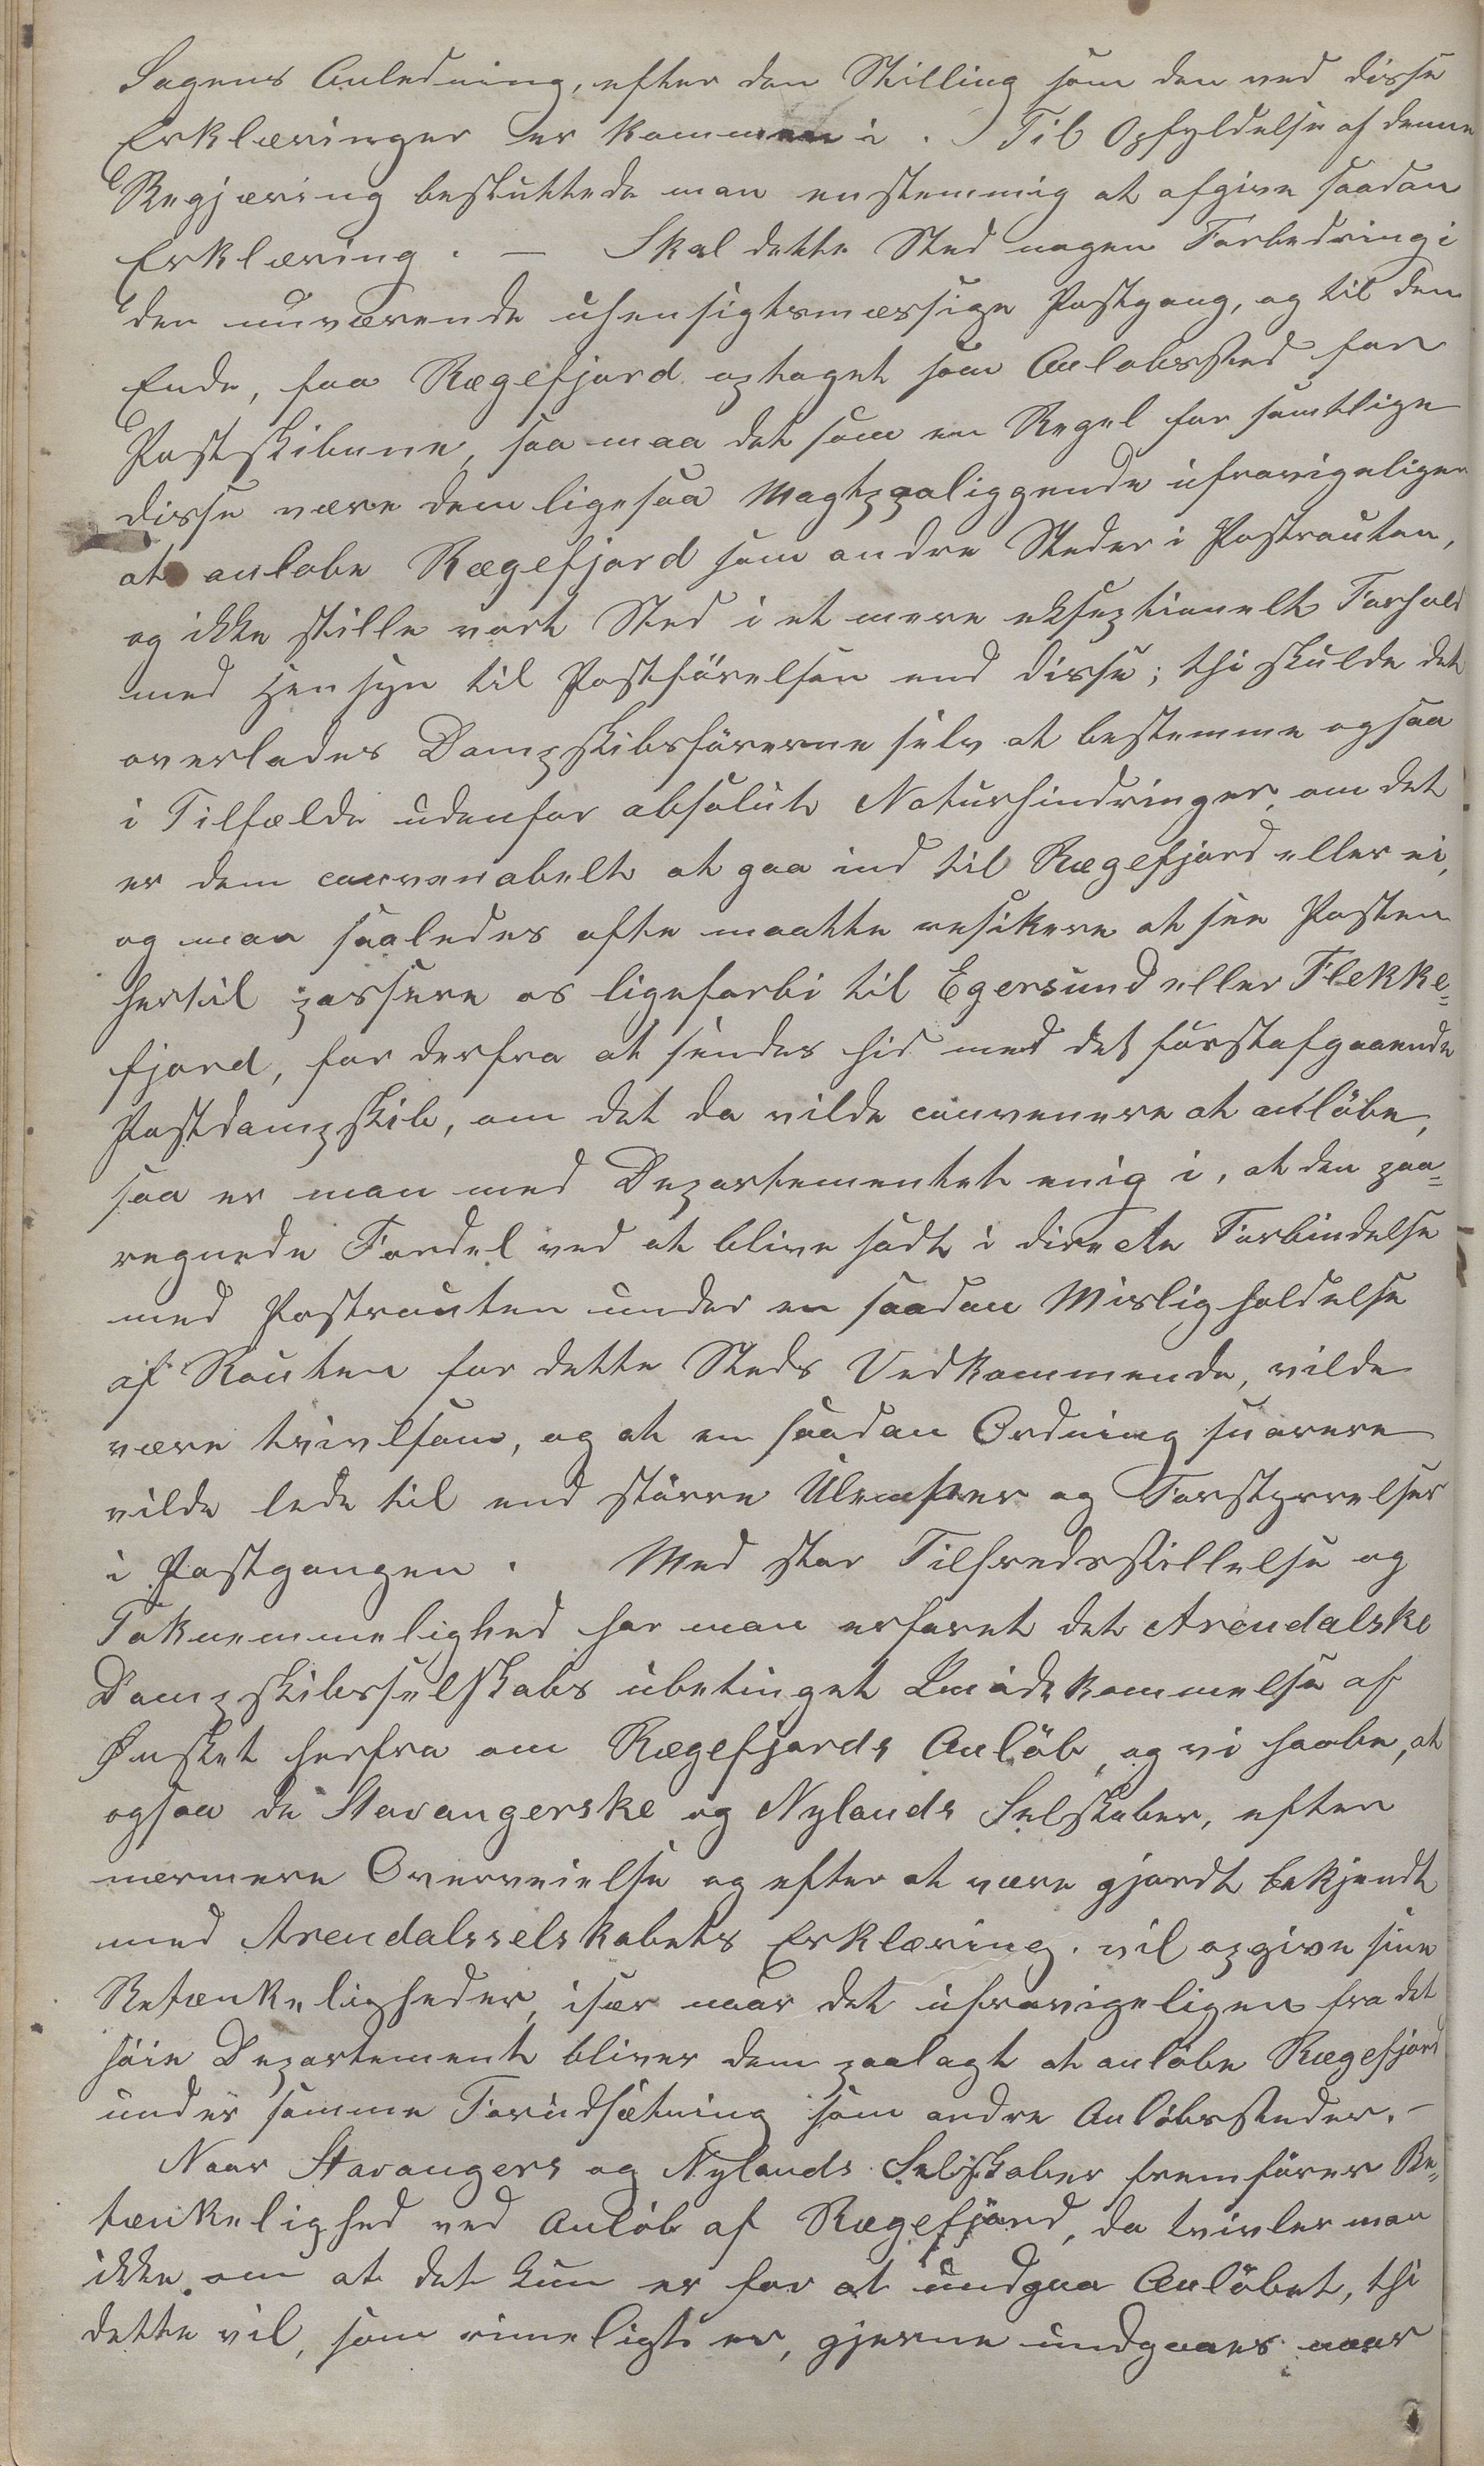 Sagens Anledning, efter den Stilling som den ved disse
Erklæringer er kommen i. Til Opfyldelse af denne
Begjæring besluttede man enstemmig at afgive saadan
Erklæring. — Skal dette Sted nogen Forbedring i
den nuværende uhensigtsmæssige Postgang, og til den
Ende, faa Rægefjord optaget som Anlobssted for
Postskibene, saa maa det som en Regel for samtlige
disse være dem ligesaa Magtpaaliggende ufravigeligen
at anlobe Rægefjord som andre Steder i Postrouten,
og ikke stille vort Sted i et mere exseptionelt Forhold
med Hensyn til Postförelsen end disse; thi skulde det
overlades Dampskibsförerne selv at bestemme ogsaa
i Tilfælde udenfor absolute Naturhindringer, om det
er dem convenabelt at gaa ind til Rægefjord eller ei,
og man saaledes ofte maatte resikere at see Posten
hertil passere os ligeforbi til Egersund eller Flekke=
fjord, for derfra at sendes hid med det förstafgaaende
Postdampskib, om det da vilde convenere at anlöbe,
saa er man med Departementet enig i, at den paa=
regnede Fordel ved at blive sadt i directe Forbindelse
med Postrouten under en saadan Misligholdelse
af Routen for dette Steds Vedkommende, vilde
være tvivlsom, og at en saadan Ordning snarere
vilde lede til end större Ulemper og Forstyrrelser
i Postgangen. Med stor Tilfredsstillelse og
Taknemmelighed har man erfaret det Arendalske
Dampskibsselskabs ubetinget Imödekommelse af
Ønsket herfra om Rægefjords Anlöb, og vi haabe, at
ogsaa de Stavangerske og Nylands Selskaber, efter
nærmere Overveielse og efter at være gjordt bekjendt
med Arendalsselskabets Erklæring, vil opgive sine
Betænkeligheder, især naar det ufravigeligen fra det
höie Departement bliver dem paalagt at anlöbe Rægefjord
under samme Forudsætning som andre Anlöbssteder. —
Naar Stavangers og Nylands Selskaber fremförer Be=
tænkelighed ved Anlöb af Rægefjord, da tvivler man
ikke om at det kun er for at undgaa Anlöbet, thi
dette vil, som rimeligt er, gjerne undgaaes naar